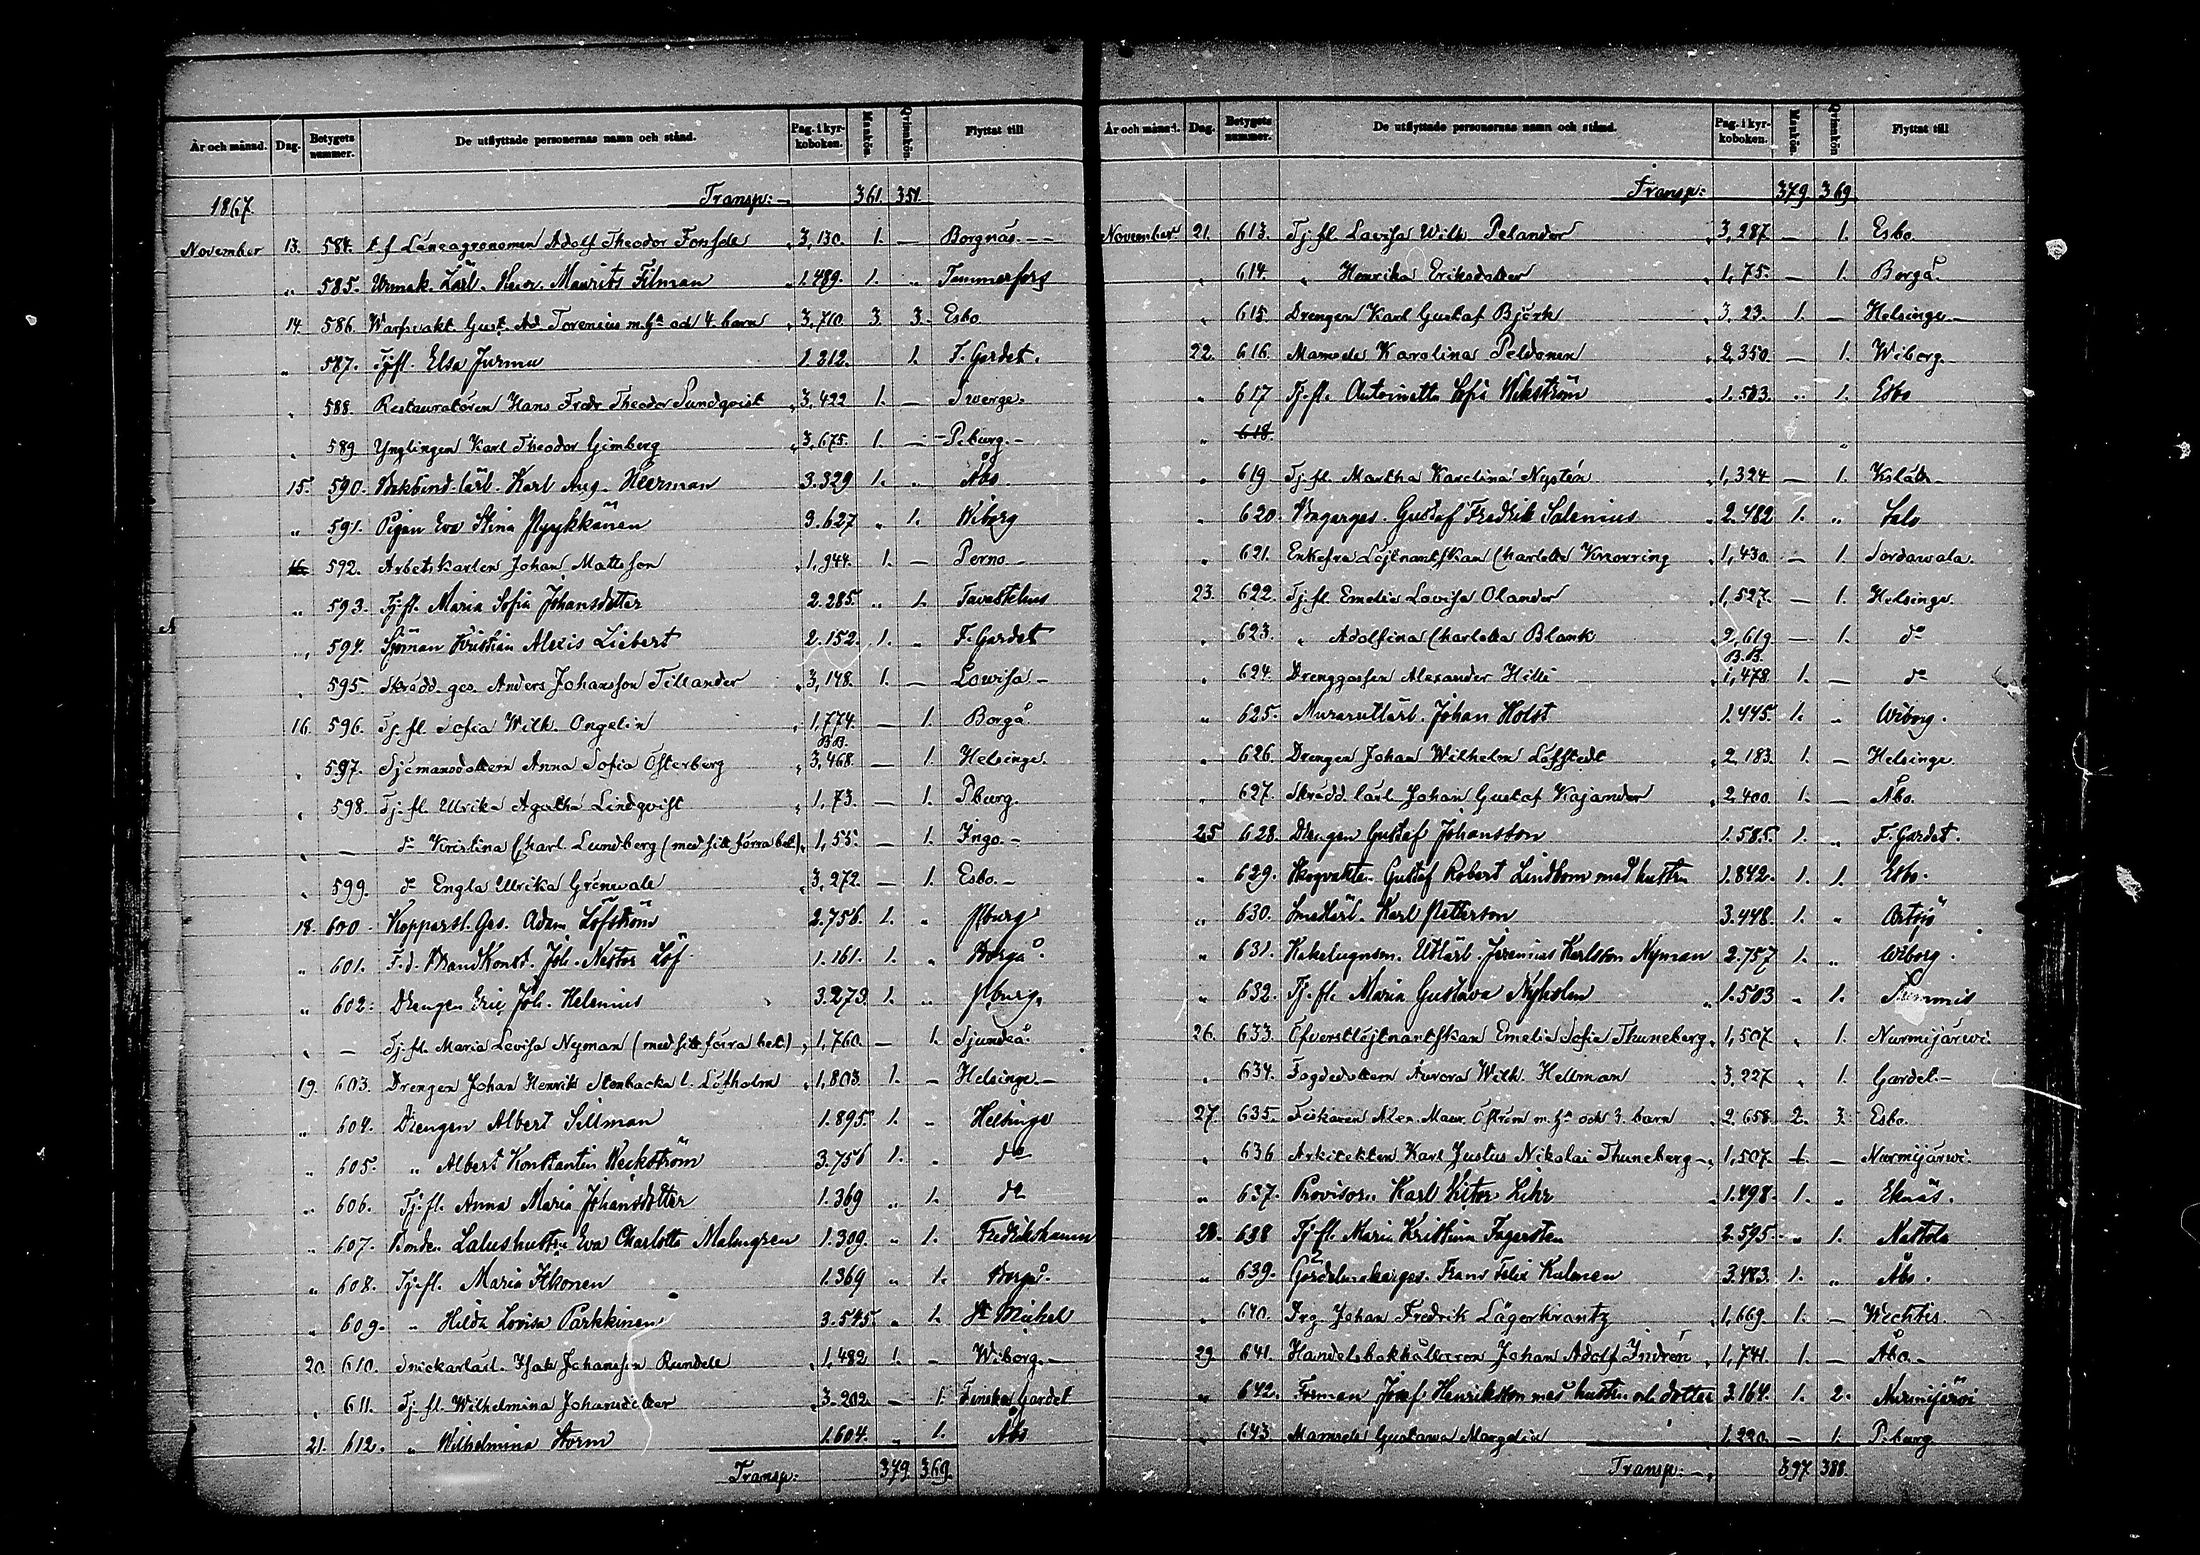 År och månad. Dag. Betygets nummer. De utflyttade personernas namn och stånd. Pag. i kyrkoboken. Mankön. Qvinnkön. Flyttat till
1867. Transp: 361. 351.
November 13. 584. t.f. Länsagronomen Adolf Theodor 3,130. 1. — Borgnäs.
" 585. Urmak. Lärl. Maurits Filman 1.489. 1. " Tammerfors
14. 586. Gust. Ad. Torenius m. h. och 4. barn 3,710 3. 3. Esbo
" 587. Tj.fl. Elsa Jurmu 1.312. 1. F. Gardet.
" 588. Restauratören Hans Fredr. Theodor Sundqvist 3,422 1. — Swerge.
" 589. Ynglingen Karl Theodor Gimberg 3,675. 1. — P.burg.
15. 590. Bokbind. lärl. Karl Aug. Heerman 3.329 1. " Åbo
" 591. Pigan Eva Stina Pyykkänen 3.627 " 1. Wiborg
16. 592. Arbetskarlen Johan Matsson 1,944. 1. — Perno
" 593. Tj.fl. Maria Sofia Johansdotter 2.285. " 1. Tavastehus
" 594. Sjöman Kristian Alexis Liebert 2.152. 1. " F. Gardet
" 595. Skrädd. ges. Anders Johansson Tillander 3,148. 1. — Lowisa
16. 596. Tj.fl. Sofia Wilh. Ongelin 1,774. — 1. Borgå
B.B.
" 597. Sjömansdottern Anna Sofia Österberg 3,468. — 1. Helsinge.
" 598. Tj.fl. Ulrika Agatha Lindqvist 1,73. — 1. P.burg.
" — do Kristina Charl. Lundberg (med sitt förra bet.) 1,55. — 1. Ingo.
" 599. do Engla Ulrika Grönwall 3,272. — 1. Esbo.
18. 600. Kopparsl. Ges. Adam Löfström 2.756. 1. " P.burg
" 601. F.d. Joh. Nestor Löf 1.161. 1. " Borgå.
" 602. Drengen Eric Joh. Helenius 3.273. 1. " P.burg.
" — Tj.fl. Maria Lovisa Nyman (med sitt förra bet.) 1,760. — 1. Sjundeå.
19. 603. Drengen Johan Henrik Stenbacka l. Löfholm 1,803. 1. — Helsinge
" 604. Drengen Albert Sillman 1.895. 1. " Helsinge
" 605. " Albert Konstantin Weckström 3.756 1. " do
" 606. Tj.fl. Anna Maria Johansdotter 1.369 " 1. do
" 607. Bonden Eva Charlotta Malmgren 1.309. " 1. Fredrikshamn
" 608. Tj.fl. Maria Ikonen 1.369 " 1. Borgå.
" 609. " Hilda Lovisa Parkkinen 3.545. " 1. St Michel
20. 610. Snickarlärl. Isak Johansson Rundell 1,482 1. — Wiborg.
" 611. Tj.fl. Wilhelmina Johansdotter 3.202. — 1. Finska Gardet
21. 612. " Wilhelmina Storm 1.604. " 1. Åbo
Transp: 379. 369.
År och månad. Dag. Betygets nummer. De utflyttade personernas namn och stånd. Pag. i kyrkoboken. Mankön. Qvinnkön Flyttat till
Transp: 379. 369.
November 21. 613. Tj.fl. Lovisa Wilh. Pelander 3,287 — 1. Esbo.
" 614. " Henrika Eriksdotter 1,75. — 1. Borgå.
" 615. Drengen Karl Gustaf Björk 3,23. 1. — Helsinge
22. 616. Mamsell Karolina Peldonen 2,350 — 1. Wiborg
" 617 Tj.fl. Antoinetta Sofia Wikström 1.583. " 1. Esbo
" 618.
" 619 Tj.fl. Martha Karolina Nystén 1,324 — 1. Kslätt
" 620. Bagarges. Gustaf Fredrik Salenius 2.482 1. " Salo
" 621. Enkefru Löjtnantskan Charlotta Knorring 1,430. — 1. Sordawala.
23. 622. Tj.fl. Emelie Lovisa Olander 1,527. — 1. Helsinge.
" 623. " Adolfina Charlotta Blank 2,619 — 1. do
B.B.
" 624. Drenggossen Alexander Hilli 1,478. 1. — do
" 625. Murareutlärl. Johan Holst 1.445. 1. " Wiborg.
" 626. Drengen Johan Wilhelm Löfstedt 2,183. 1. — Helsinge
" 627. Skrädd. lärl. Johan Gustaf Kajander 2,400. 1. — Åbo.
25 628. Drengen Gustaf Johansson 1.585. 1. " F. Gardet.
" 629. Skogvakten Gustaf Robert Lindbom med hustru 1.842. 1. 1. Esbo.
" 630. Smedlärl. Karl Petterson 3.448. 1. " Artsjö
" 631. Kakelugnsm. Utlärl. Jeremias Karlsson Nyman 2.757 1. " Wiborg.
" 632. Tj.fl. Maria Gustava Nyholm 1.503 " 1.
26. 633. Öfverstlöjtnantskan Emelie Sofia Thuneberg 1,507. " 1. Nurmijärwi.
" 634. Fogdedottern Aurora Wilh. Hellman 3,227. " 1. Gardet.
27. 635. Fiskaren Alex. Maur. Öström m. h. och 3. barn 2,658. 2. 3. Esbo.
" 636 Arkitekten Karl Justus Nikolai Thuneberg 1,507. 1. — Nurmijärwi.
" 637. Provisorn Karl Victor Lihr 1.498. 1. " Eknäs.
28. 638 Tj.fl. Maria Kristina Fagersten 2.595. " 1. Nastola
" 639. Gördelmakarges. Frans Felix Kulmen 3.483. 1. " Åbo.
" 640. Drg. Johan Fredrik Lagerkrantz 1,669. 1. — Wichtis.
29. 641. Handelsbokhållaren Johan Adolf Indrén 1,741. 1. — Åbo.
" 642. Forman Josef Henriksson med hustru och dotter 3.164. 1. 2. Nurmijärvi
" 643 Mamsell Gustawa 1.220. — 1. P.burg
Transp: 397. 388.